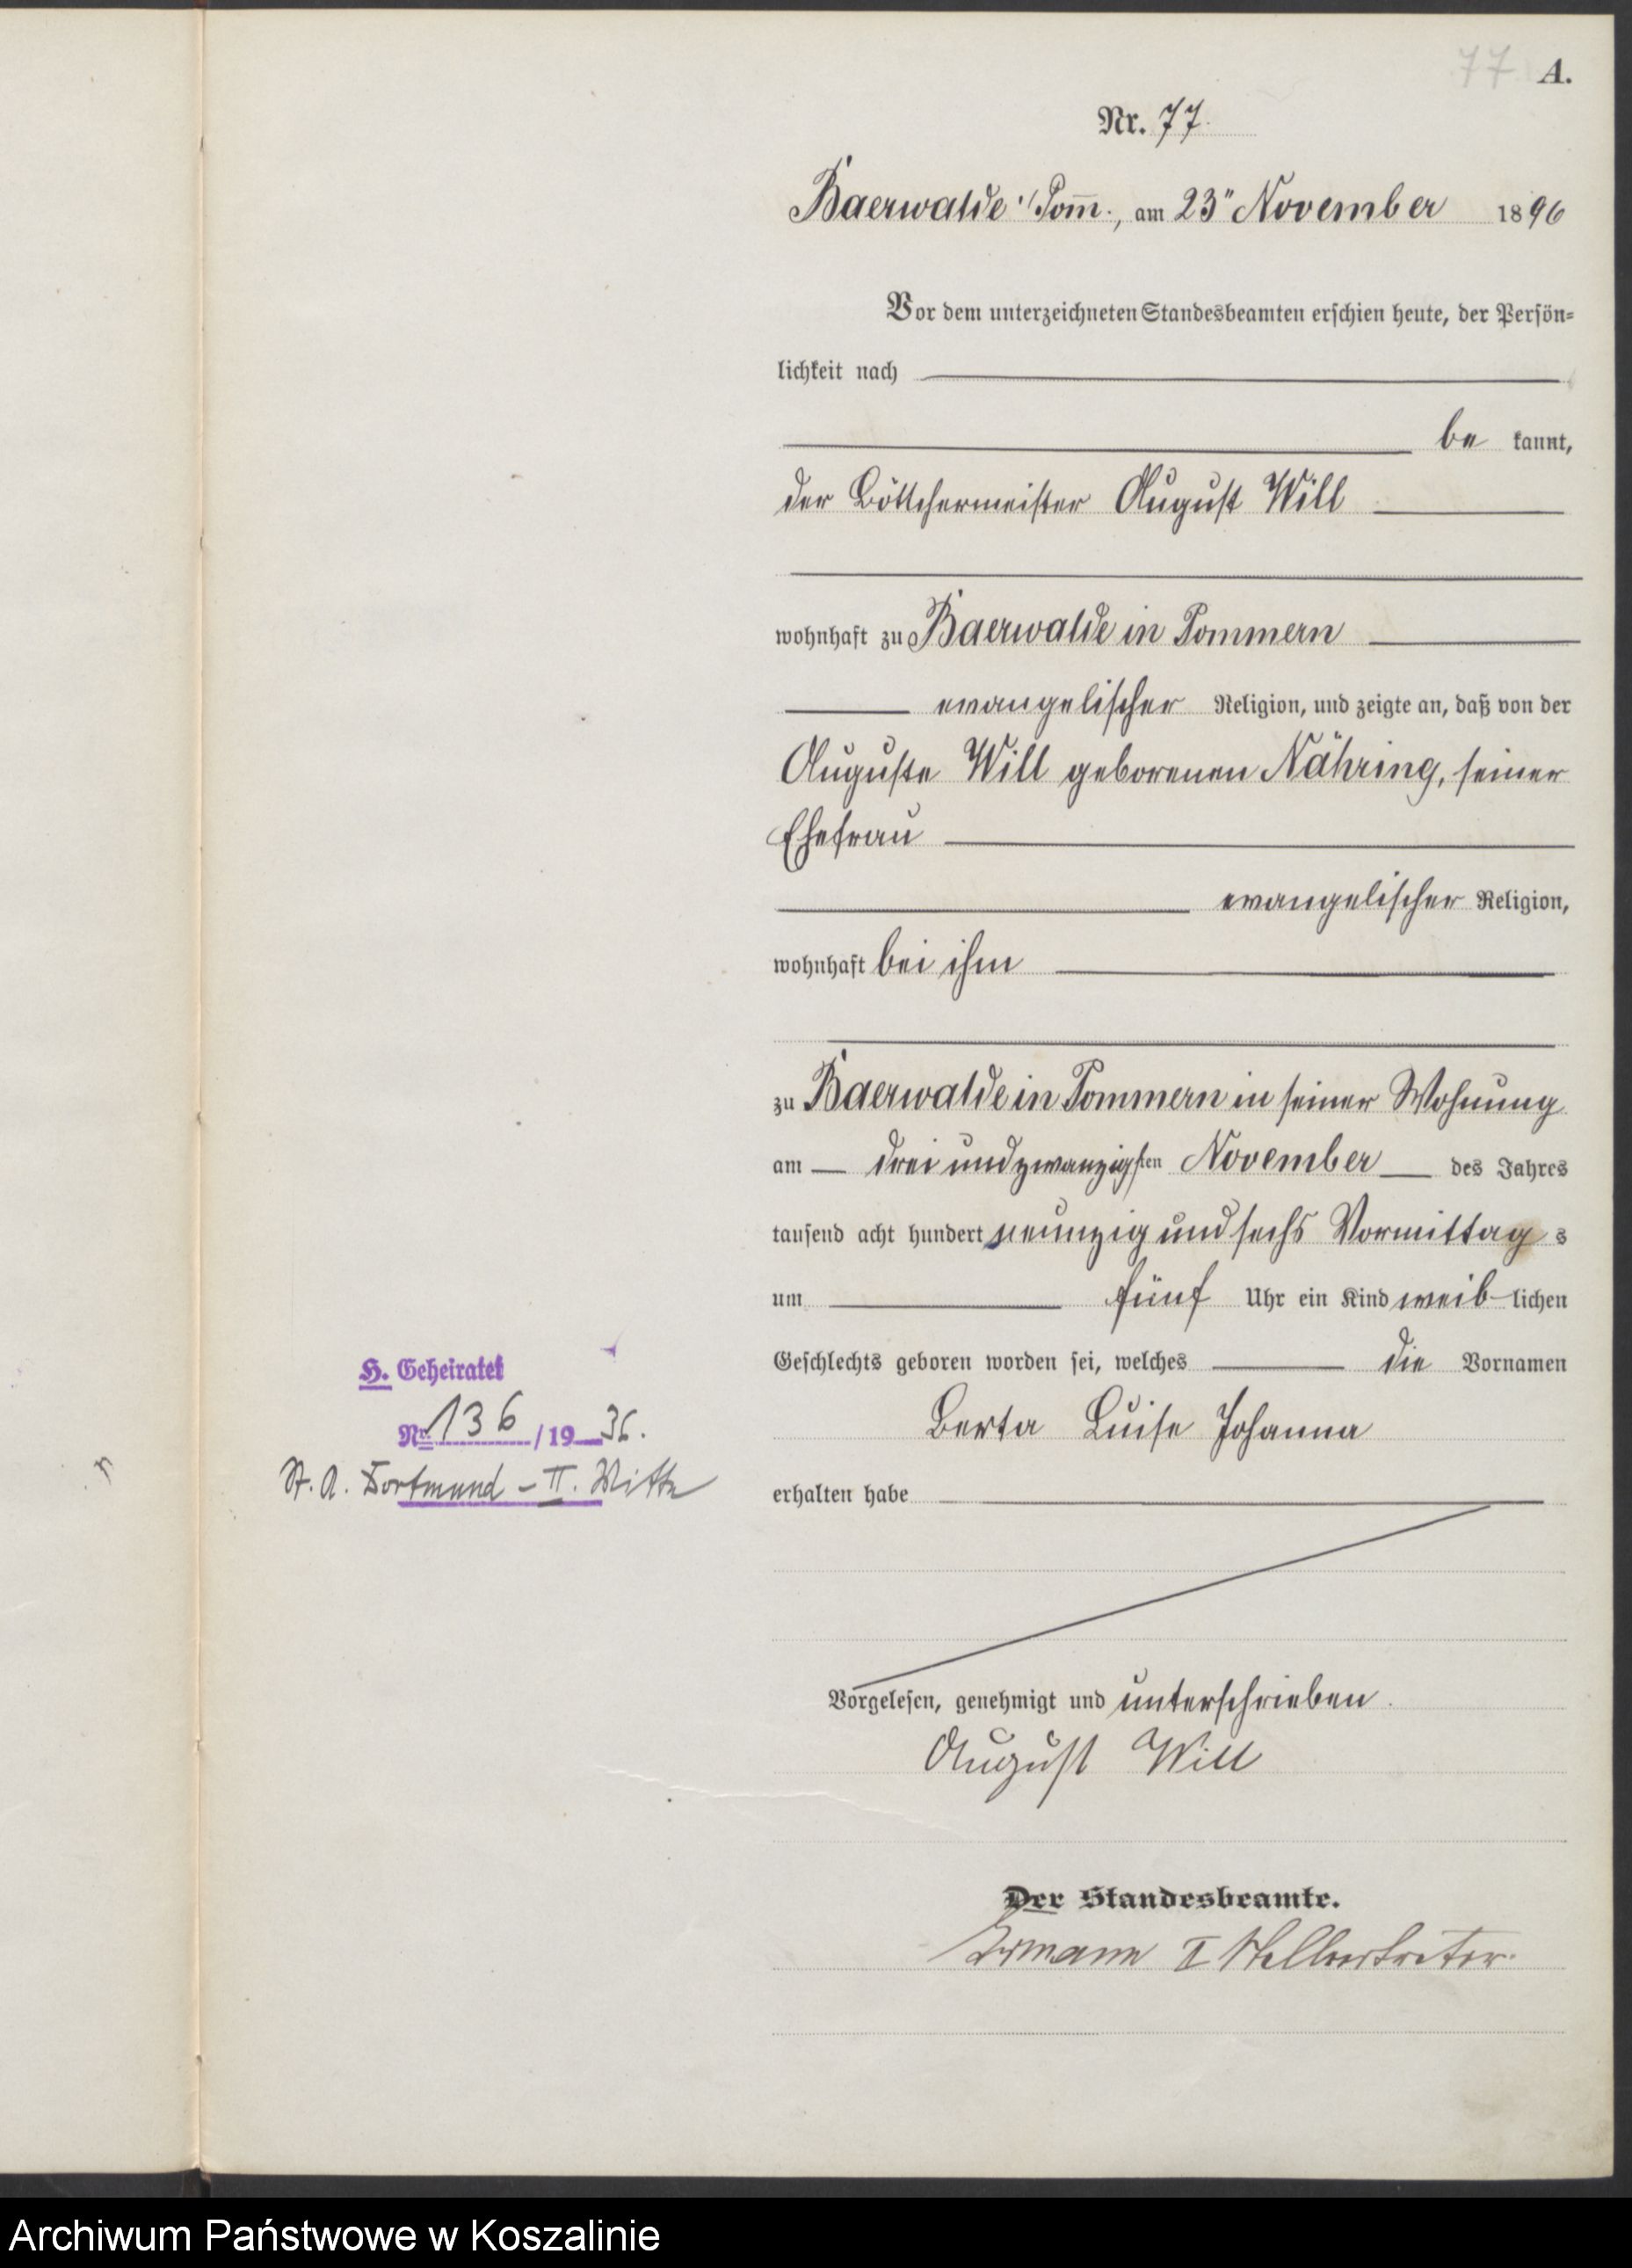 77 A.
Nr. 77.
Baerwalde i/Pom̅., am 23ⁿ November 1896
Vor dem unterzeichneten Standesbeamten erschien heute, der Persön-
lichkeit nach
be kannt,
der Böttchermeister August Will
wohnhaft zu Baerwalde in Pommern
evangelischer Religion, und zeigte an, daß von der
Auguste Will geborenen Nähring, seiner
Ehefrau
evangelischer Religion,
wohnhaft bei ihm
zu Baerwalde in Pommern in seiner Wohnung
am drei und zwanzigsten November des Jahres
tausend acht hundert neunzig und sechs Vormittag s
um fünf Uhr ein Kind weib-lichen
Geschlechts geboren worden sei, welches die Vornamen
Berta Luise Johanna
erhalten habe
Vorgelesen, genehmigt und unterschrieben.
August Will
Der Standesbeamte.
II Stellvertreter.
H. Geheiratet
Nr. 136/1936.
St. A. Dortmund - II. Mitte
Archiwum Państwowe w Koszalinie